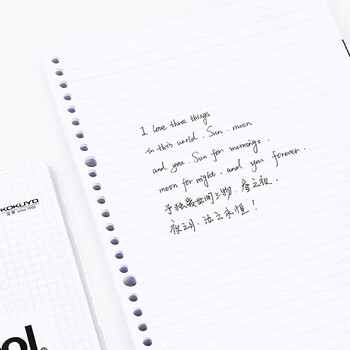 I love three things
in this world. Sun. moon
and you. Sun for morning.
moon for night. and you forever.
予独爱世间三物. 昼之
夜之月. 汝之永恒!
KOKUYO
ol®